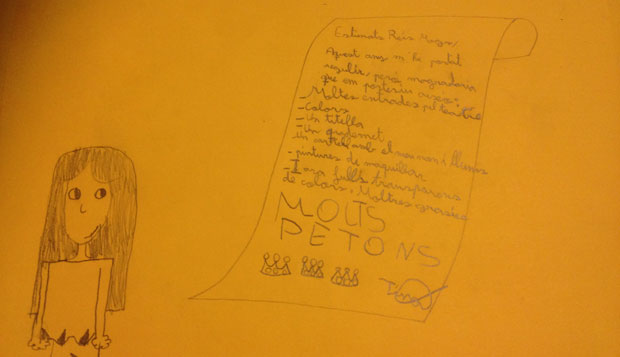 Estimats Reis Mags,
Aquest any m'he portat
regular, però m'agradaria
que em portessiu
-Moltes entrades pel teatre
-Colors
-Un titella
-Un quadernet
Un cartell amb el meu nom i llums
-pintures de maquillar
-I uns fulls transparens
de colors. Moltres
MOLTS
PETONS